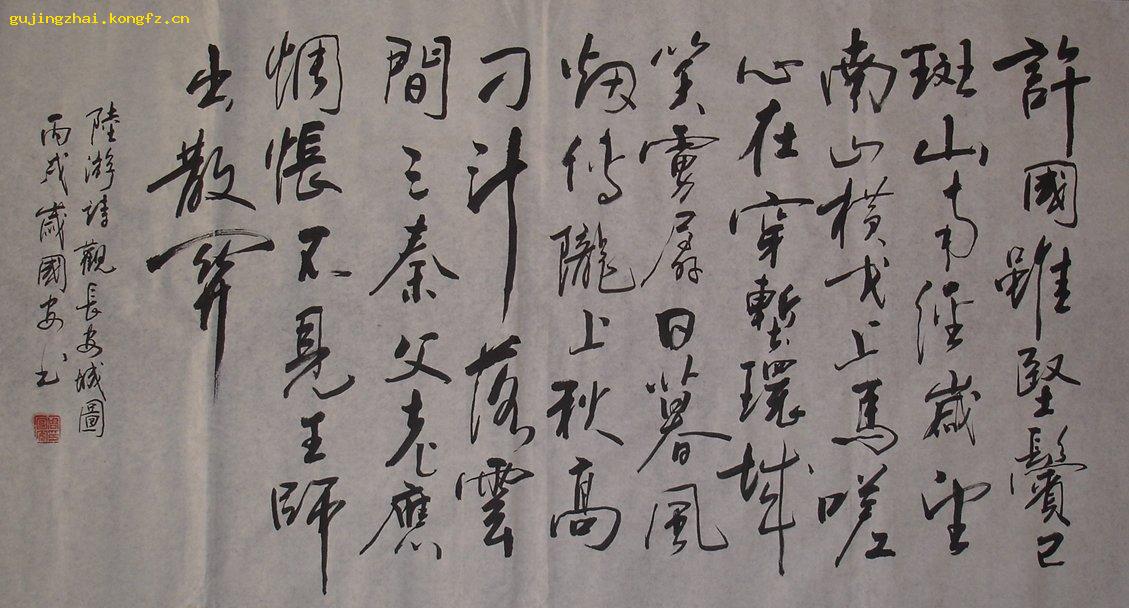 gujingzhai.kongfz.cn
許國雖堅鬢已
斑山南經歲望
南山橫戈上馬嗟
心在穿塹環城
笑虜孱日暮風
烟傳隴上秋高
刁斗落雲
間三秦父老應
惆悵不見王師
出散關
陸游詩觀長安城圖
丙戌歲國安書